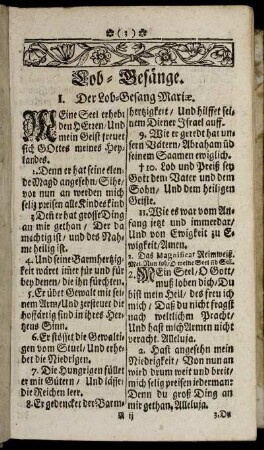 (3)
Lob-Gesänge.
I. Der Lob-Gesang Mariæ.
MEine Seel erhebt
den HErren/ Und
mein Geist freuet
sich GOttes meines Hey-
landes.
2. Denn er hat seine elen-
de Magd angesehen/ Sihe/
von nun an werden mich
selig preisen alle Kindeskind
3 Deñ er hat grosse Ding
an mir gethan/ Der da
mächtig ist/ und des Nah-
me heilig ist.
4. Und seine Barmhertzig-
keit wäret im̃er für und für
bey denen/ die ihn fürchten.
5. Er übet Gewalt mit sei-
nem Arm/ Und zerstreuet die
hoffärtig sind in ihres Her-
tzens Sinn.
6. Er stösset die Gewalti-
gen vom Stuel/ Und erhe-
bet die Niedrigen.
7. Die Hungrigen füllet
er mit Gütern/ Und lässet
die Reichen leer.
8. Er gedencket der Barm-
hertzigkeit/ Und hilffet sei-
nem Diener Israel auff.
9. Wie er geredt hat un-
sern Vätern/ Abraham uñ
seinem Saamen ewiglich.
† 10. Lob und Preiß sey
Gott dem Vater und dem
Sohn/ Und dem heiligen
Geiste.
11. Wie es war von An-
fang jetzt und immerdar/
Und von Ewigkeit zu E-
wigkeit/ Amen.
2. Das Magnificat Reimweiß.
2. MEin Seel/ O Gott/
muß loben dich/ Du
bist mein Heil/ des freu ich
mich/ Daß du nicht fragst
nach weltlichem Pracht/
Und hast mich Armen nicht
veracht. Alleluja.
2. Hast angesehn mein
Niedrigkeit/ Von nun an
wird drum weit und breit/
mich selig preisen iederman:
Denn du groß Ding an
mir gethan, Alleluja.
A ij
3. Du